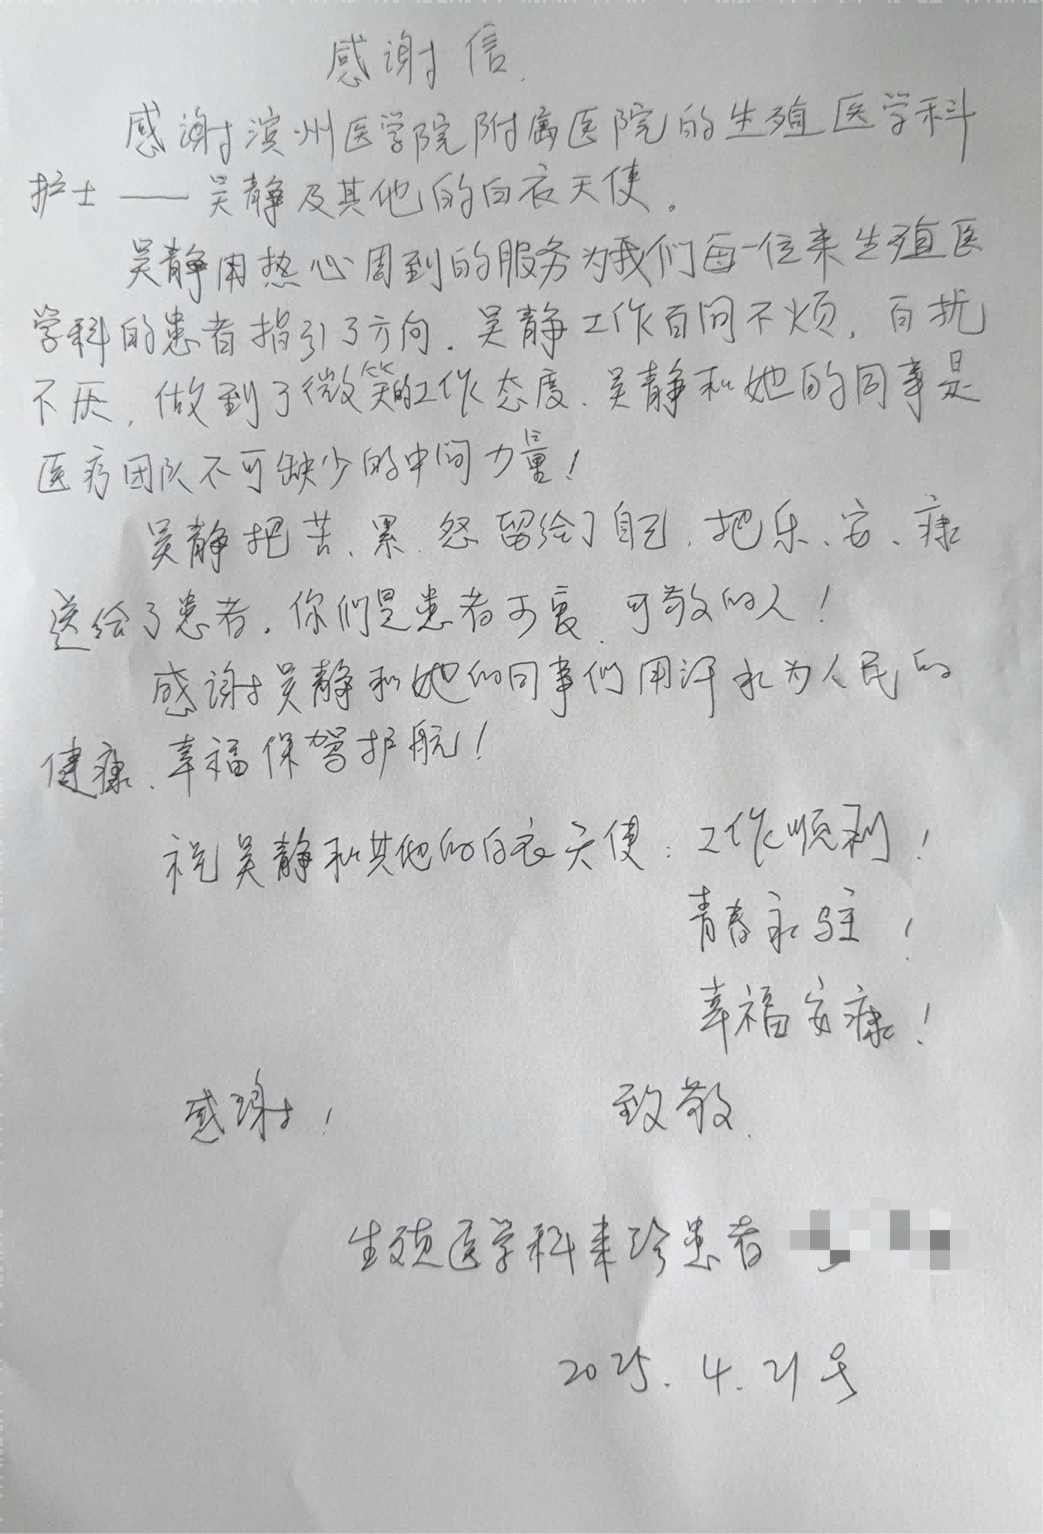 感谢信
感谢滨州医学院附属医院的生殖医学科
护士——吴静及其他的白衣天使。
吴静用热心周到的服务为我们每一位来生殖医
学科的患者指引了方向。吴静工作百问不烦，百扰
不厌，做到了微笑的工作态度、吴静和她的同事是
医疗团队不可缺少的中间力量！
吴静把苦、累、怨留给了自己，把乐、安、康
送给了患者。你们是患者可爱、可敬的人！
感谢吴静和她的同事们用汗水为人民的
健康、幸福保驾护航！
祝吴静和其他的白衣天使：工作顺利！
青春永驻！
幸福安康！
感谢！ 致敬
生殖医学科来诊患者
2025.4.21号